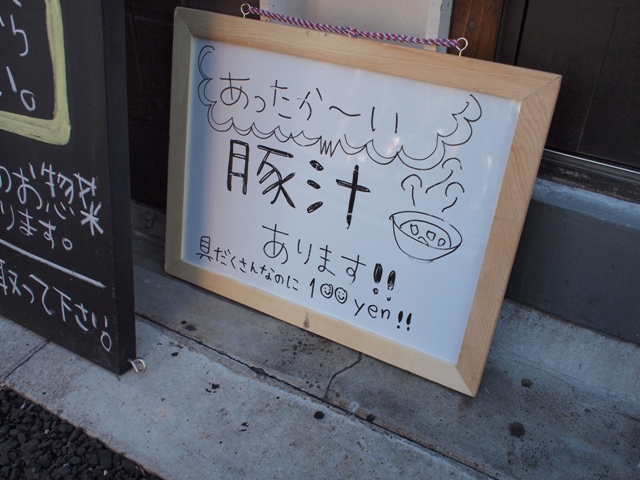 から
い。
のお惣菜
ります。
取って下さい。
あったか〜い
豚汁
あります!!
具だくさんなのに 100 yen!!